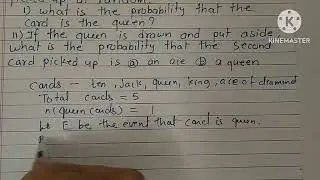 1) what is the probability that the
card is the queen?
11) If the queen is drawn and put aside
what is the probability that the second
card picked up is (a) an ace (b) a queen
cards - ten, Jack, queen, king, ace of diamond
Total cards = 5
n(queen cards) = 1
Let E be the event that card is queen.
KINEMASTER